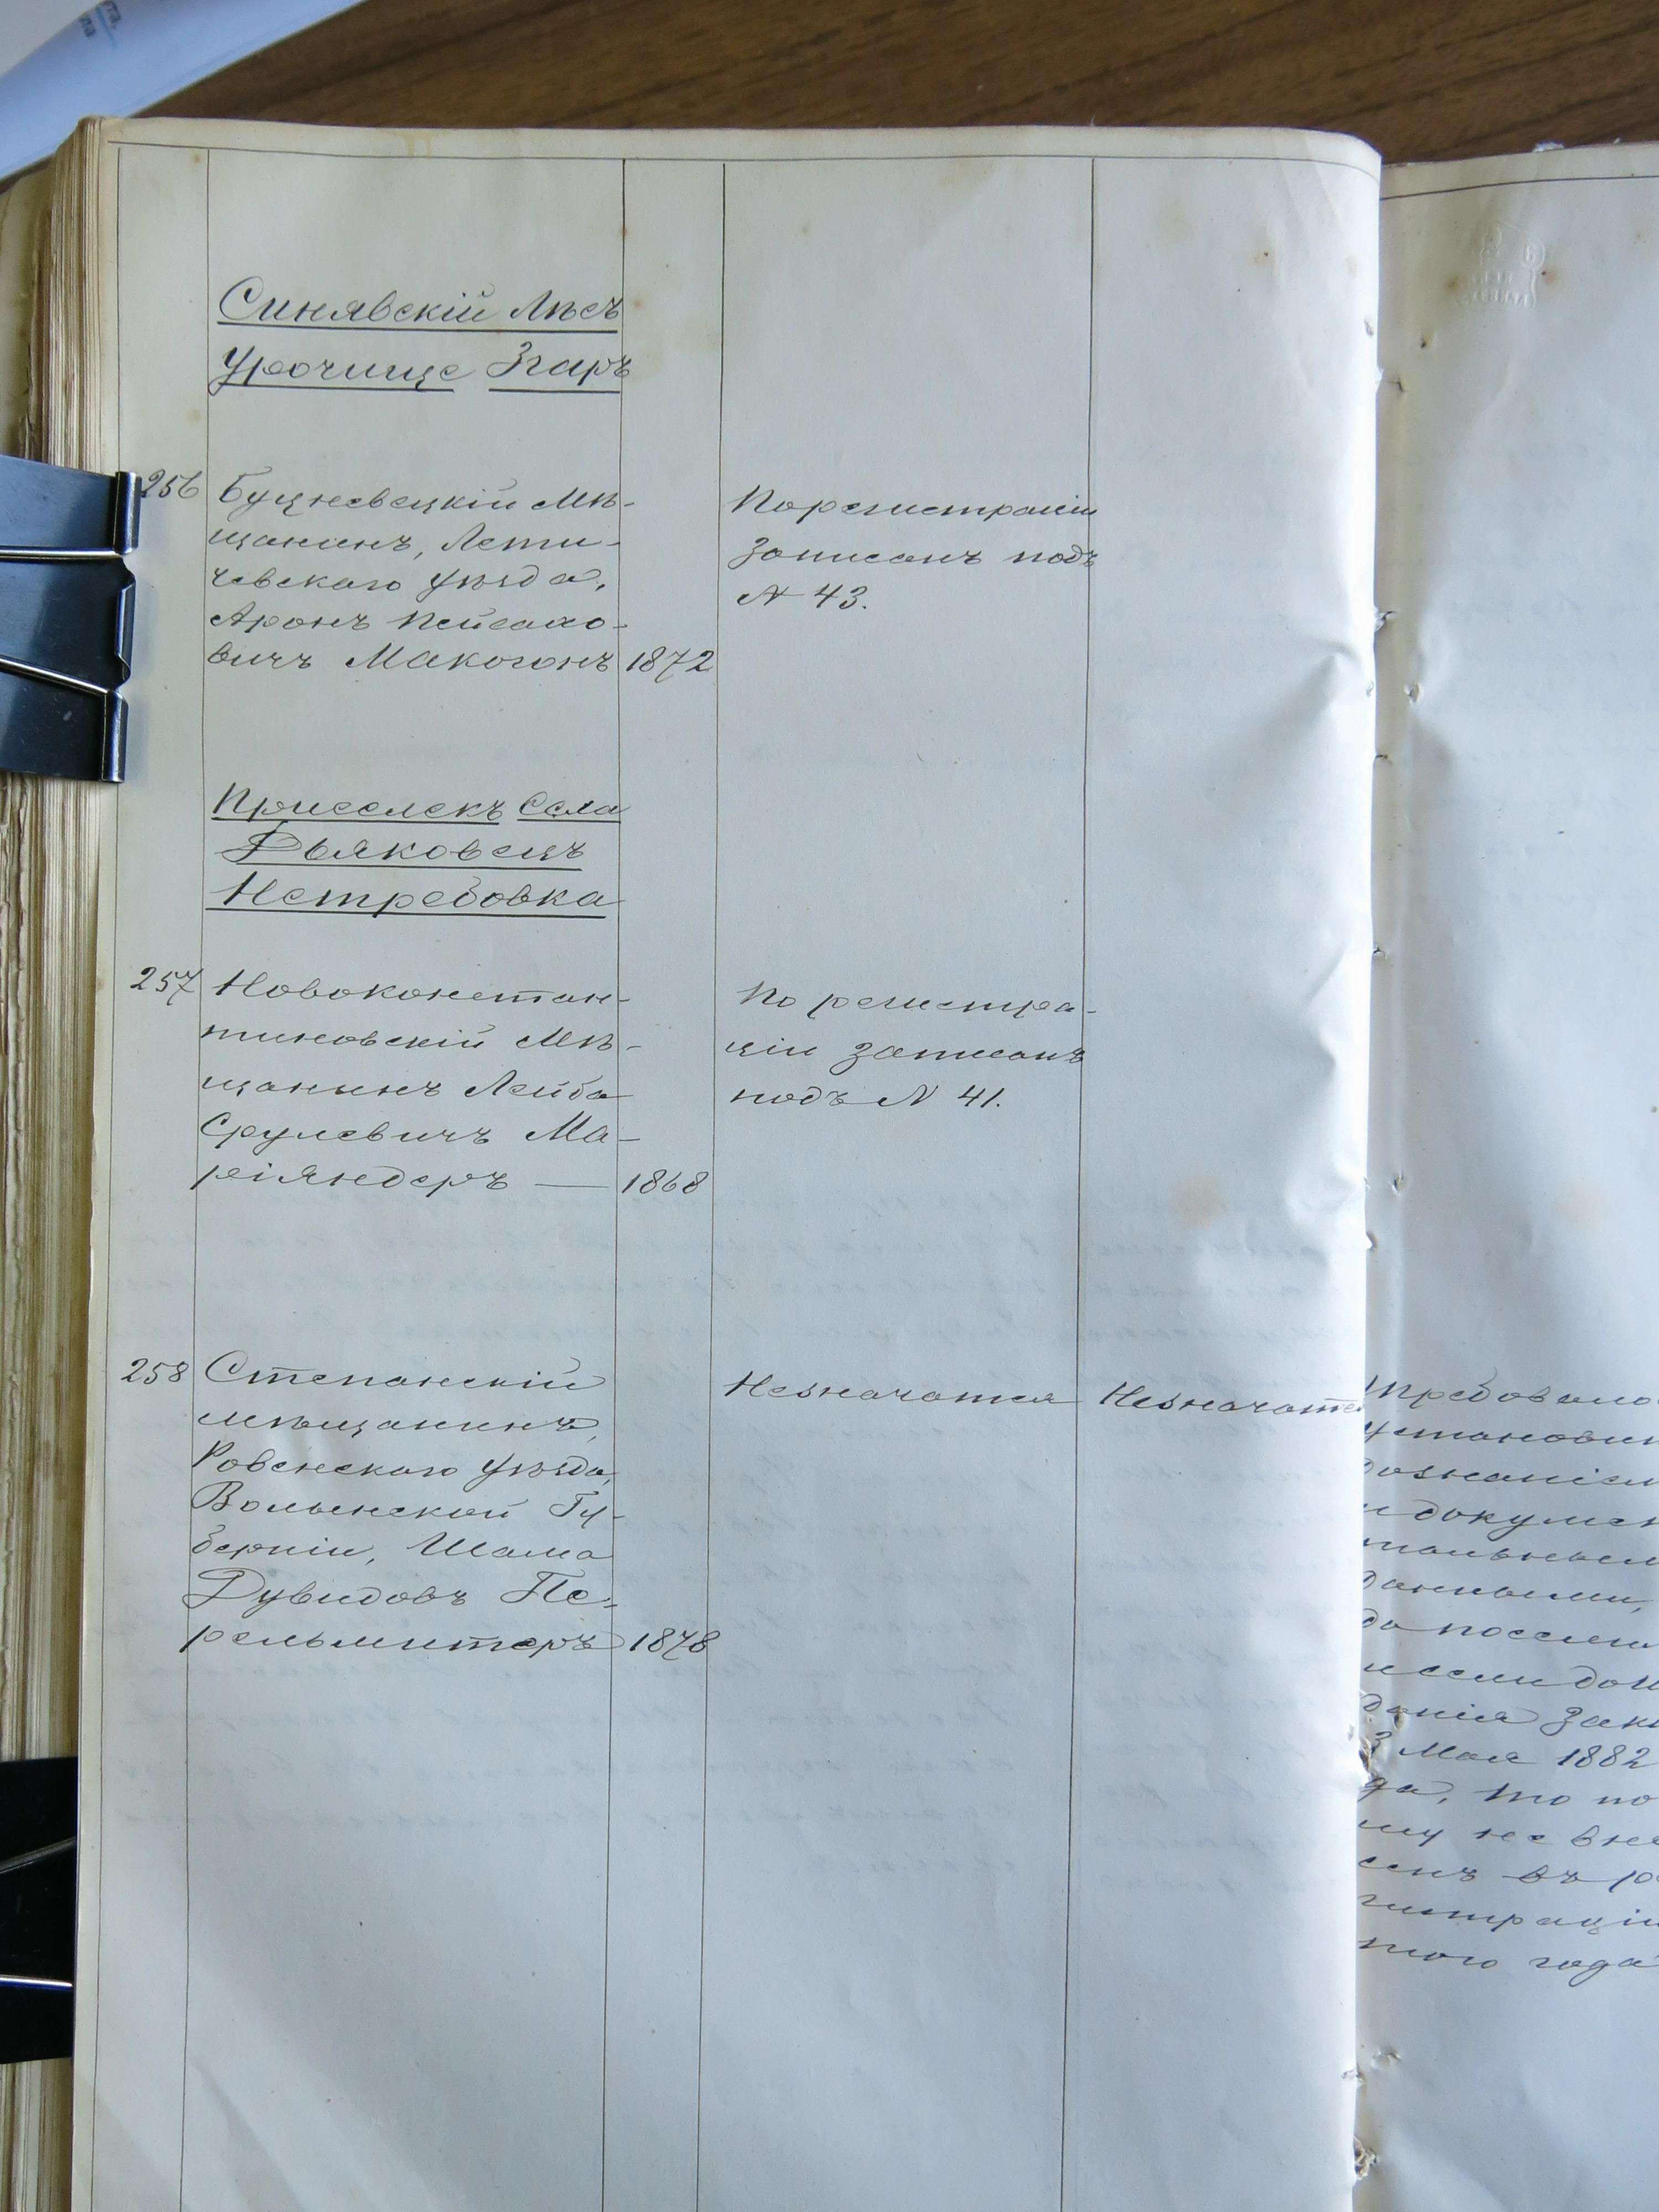 Синявскій Лѣсъ
Урочище Згаръ
256
Буцневецкій Мѣ-
щанинъ, Лети-
чевскаго Уѣзда,
Аронъ Пейсахо-
вичъ Макогонъ
1872
По регистраціи
записанъ подъ
N 43.
Приселекъ Села
Дьяковецъ
Нетребовка
257
Новоконстан-
тиновскій Мѣ-
щанинъ Лейба
Срулевичъ Ма-
ріяндеръ —
1868
По регистра-
ціи записанъ
подъ N 41.
258
Степанскій
мѣщанинъ,
Ровенскаго Уѣзда,
Волынской Гу-
берніи, Шама
Дувидовъ Пе-
рельмитеръ
1878
Незначится
Незначится
Требовало
установи
дознаніем
и докумен
тальным
данными,
до поселен
данія Зак
3 Мая 1882
да, то по
му не вне
сенъ въ ре
гистрацію
того года